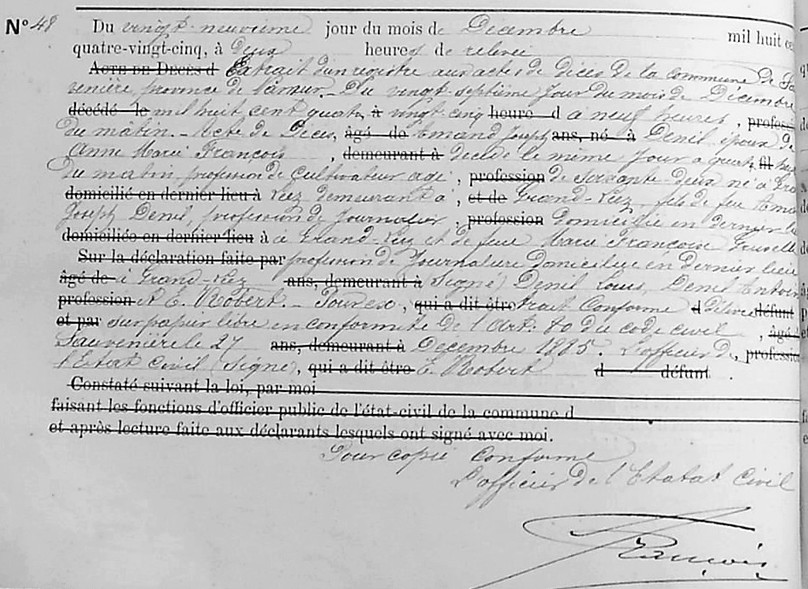 N° 48
Du vingt-neuvième jour du mois de Décembre mil huit ce
quatre-vingt-cinq, à deux heures de relevée
Acte de Décès d Extrait d'un registre aux actes de décès de la commune de Sau
venière province de Namur. Du vingt septième jour du mois de Décembre
décédé le mil huit cent quatre à vingt cinq heure d à neuf heures, profess
du matin. - Acte de Décès, âgé de Emand Joseph ans, né à Denil époux de
Anne Marie François, demeurant à décédé le même jour à quatre fil heu
du matin profession de Cultivateur agé, profession de soixante deux né à Gra
domicilié en dernier lieu à Liez demeurant à, et de Grand-Liez, fils de feu Eman
Joseph Denil, profession de Journalier, profession domicilié en dernier lie
domiciliée en dernier lieu à à Grand-Liez et de feue Marie Françoise
Sur la déclaration faite par profession de Journalière Domiciliée en dernier lieu
âgé de à Grand-Liez. ans, demeurant à (Signé) Denil Louis, Denil Antoin
profession et E. Robert. - Pour ex, qui a dit être trait Conforme d délivré défunt
et par sur papier libre en conformité de l'Art: 80 du code civil, âgé d
Sauvenière le 27 ans, demeurant à Decembre 1885. L'officier d, professio
l'Etat Civil (signé), qui a dit être E. Robert d défunt.
Constaté suivant la loi, par moi
faisant les fonctions d'officier public de l'état-civil de la commune d
et après lecture faite aux déclarants lesquels ont signé avec moi.
Pour copie Conforme
L'officier de l'Etatat Civil
François